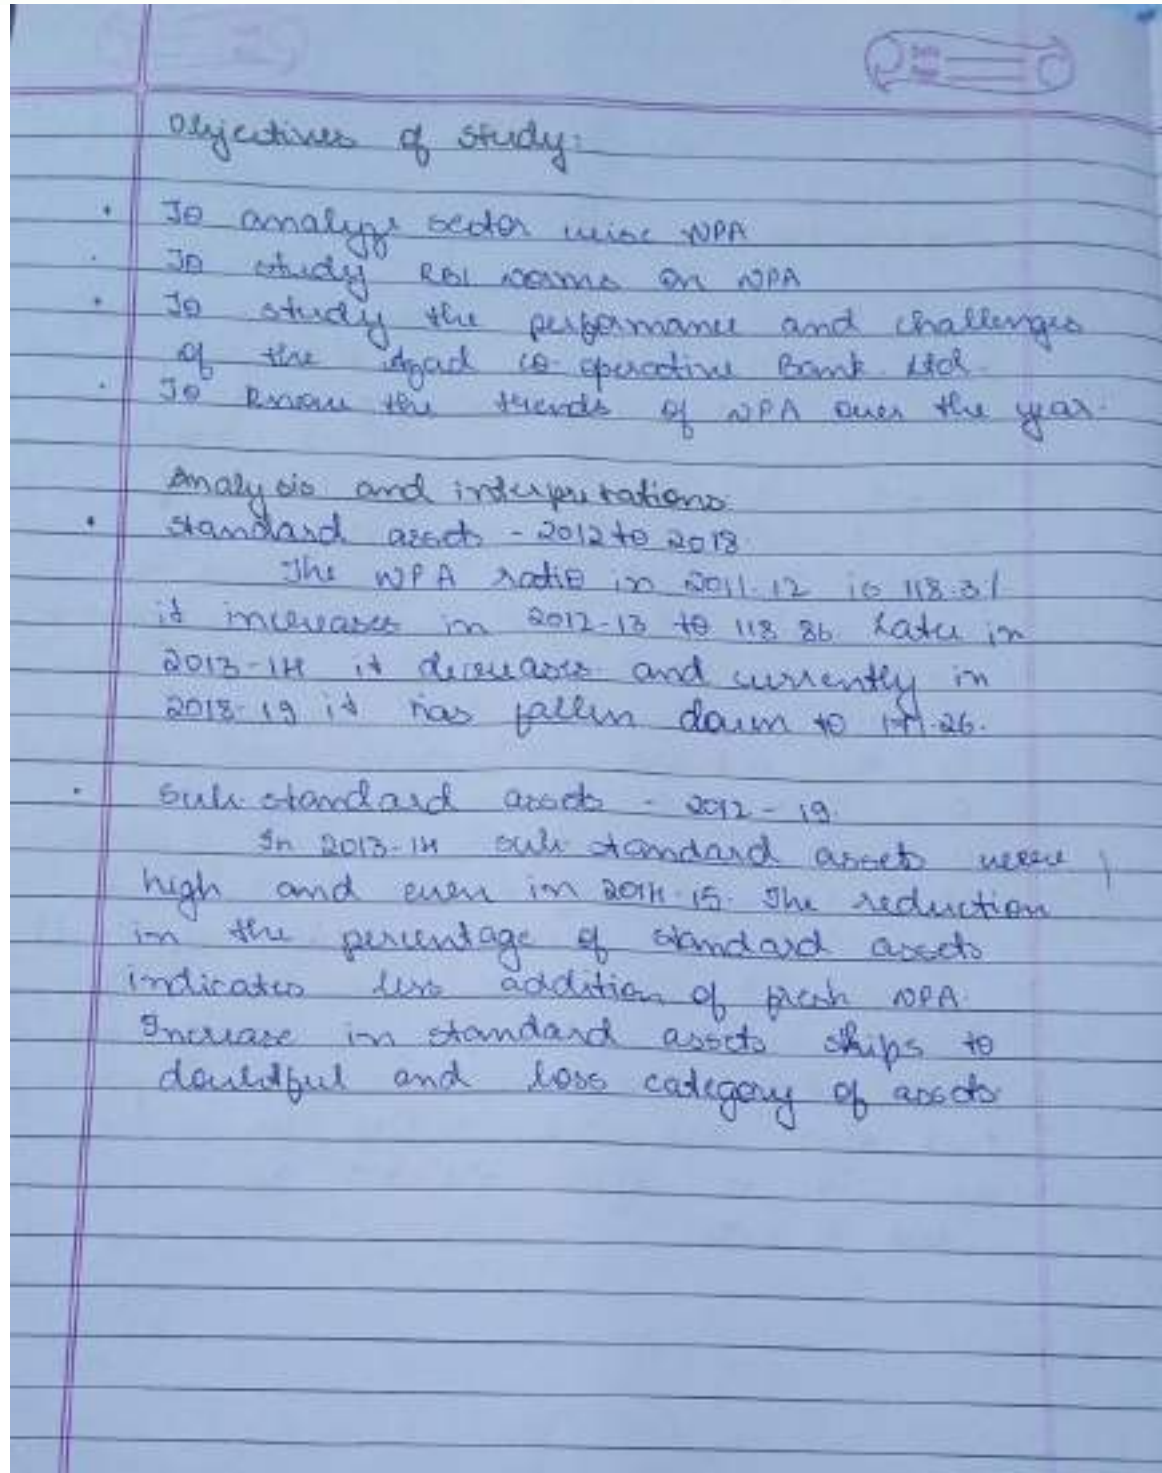 Objectives of study:
To analyze sector wise NPA
To study RBI norms on NPA
To study the performance and challenges
of the Azad co-operative Bank Ltd.
To know the trends of NPA over the year.
Analysis and interpretations
• standard assets - 2012 to 2018
The NPA ratio in 2011-12 is 118.31
it increases in 2012-13 to 118.86. Later in
2013-14 it decreases and currently in
2018-19 it has fallen down to
• Sub standard assets - 2012-19.
In 2013-14 sub standard assets were
high and even in 2014-15. The reduction
in the percentage of standard assets
indicates less addition of fresh NPA.
Increase in standard assets ships to
doubtful and loss category of assets